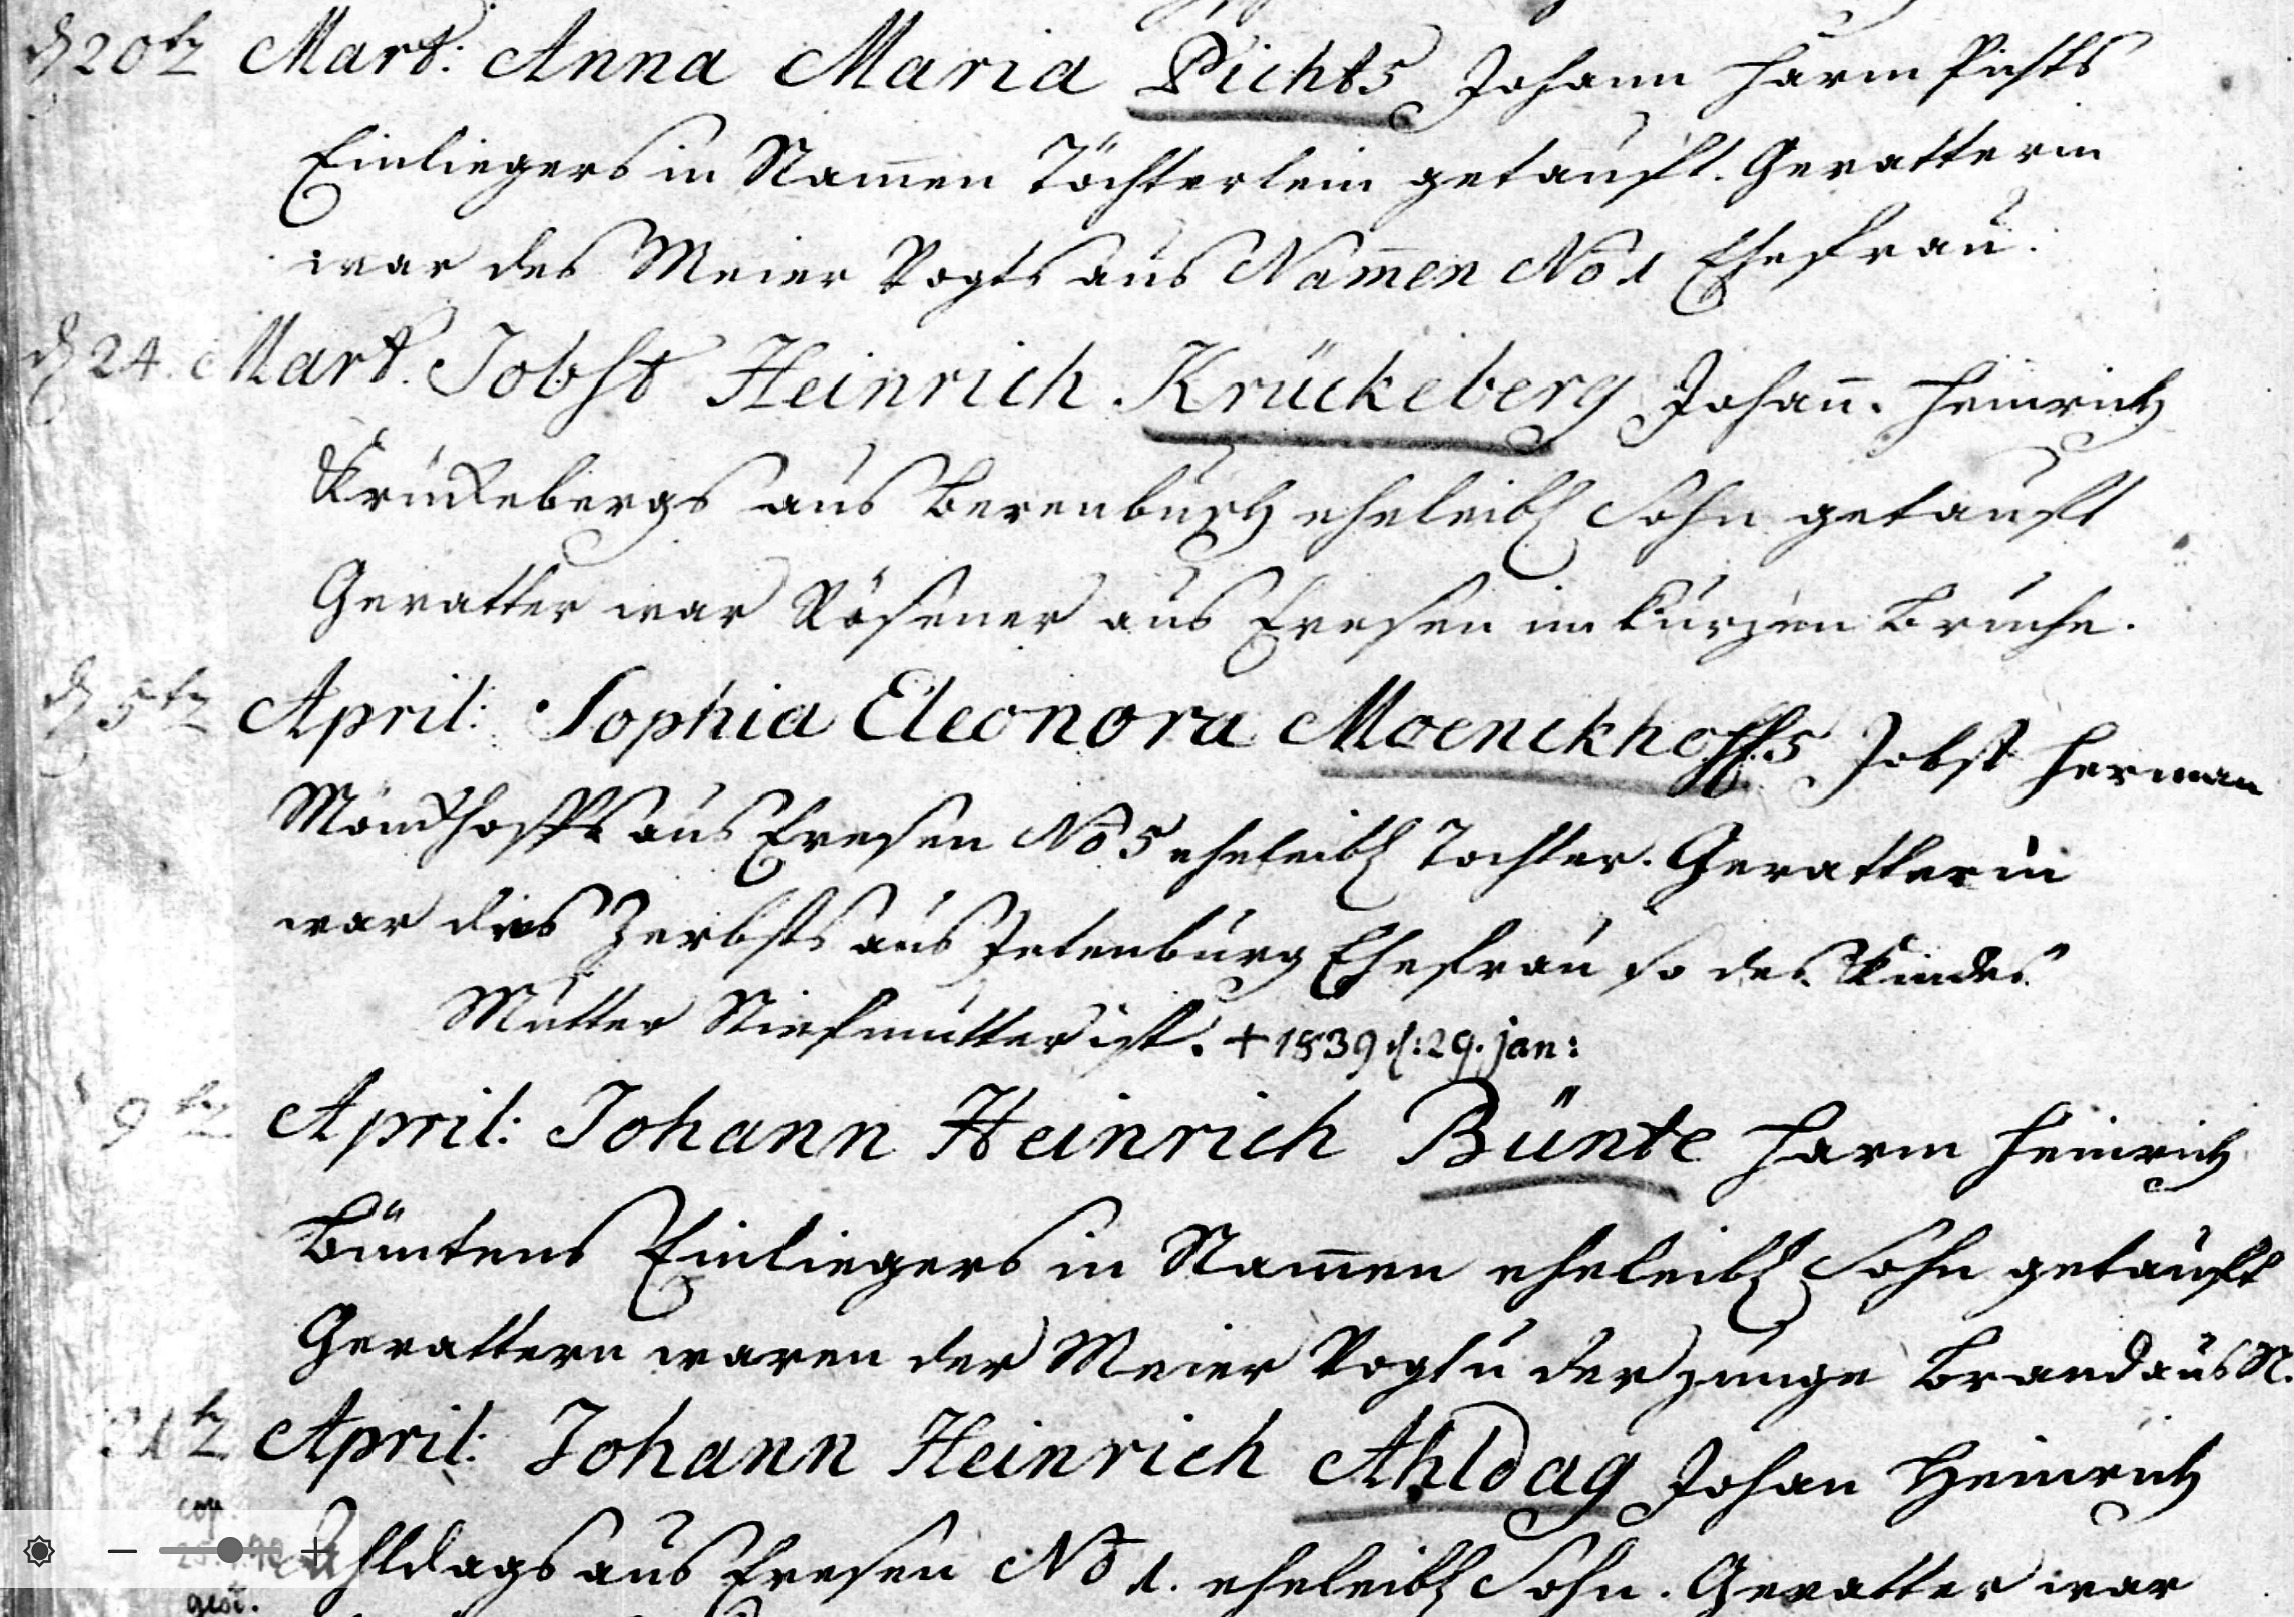 d 20tz Mart: Anna Maria Pichts Johann Harm Pichts
Einliegers in Nam̅en Töchterlein getauft. Gevatterin
war des Meier Vogts aus Nam̅en No 1 Ehefrau.
d 24. Mart. Jobst Heinrich Krückeberg Johan̅. Heinrich
Krückebergs aus Berenbusch eheleibl Sohn getauft
Gevatter war Rösener aus Evesen im kurzen Bruche.
d 5tz April: Sophia Eleonora Moenckhoffs Jobst Herman
Mönckhoffs aus Evesen No 5 eheleibl Tochter. Gevatterin
war des Zerbsts aus Jetenburg Ehefrau so des Kindes
Mutter Stiefmutter ist. + 1839 d: 29. jan:
9tz April: Johann Heinrich Bünte Harm Heinrich
Büntens Einliegers in Nam̅en eheleibl Sohn getauft
Gevattern waren der Meier Vogt u der junge Brand aus N.
21tz April: Johann Heinrich Ahldag Johan Heinrich
cop.
Ahldags aus Evesen No 1. eheleibl Sohn. Gevatter war
gest.